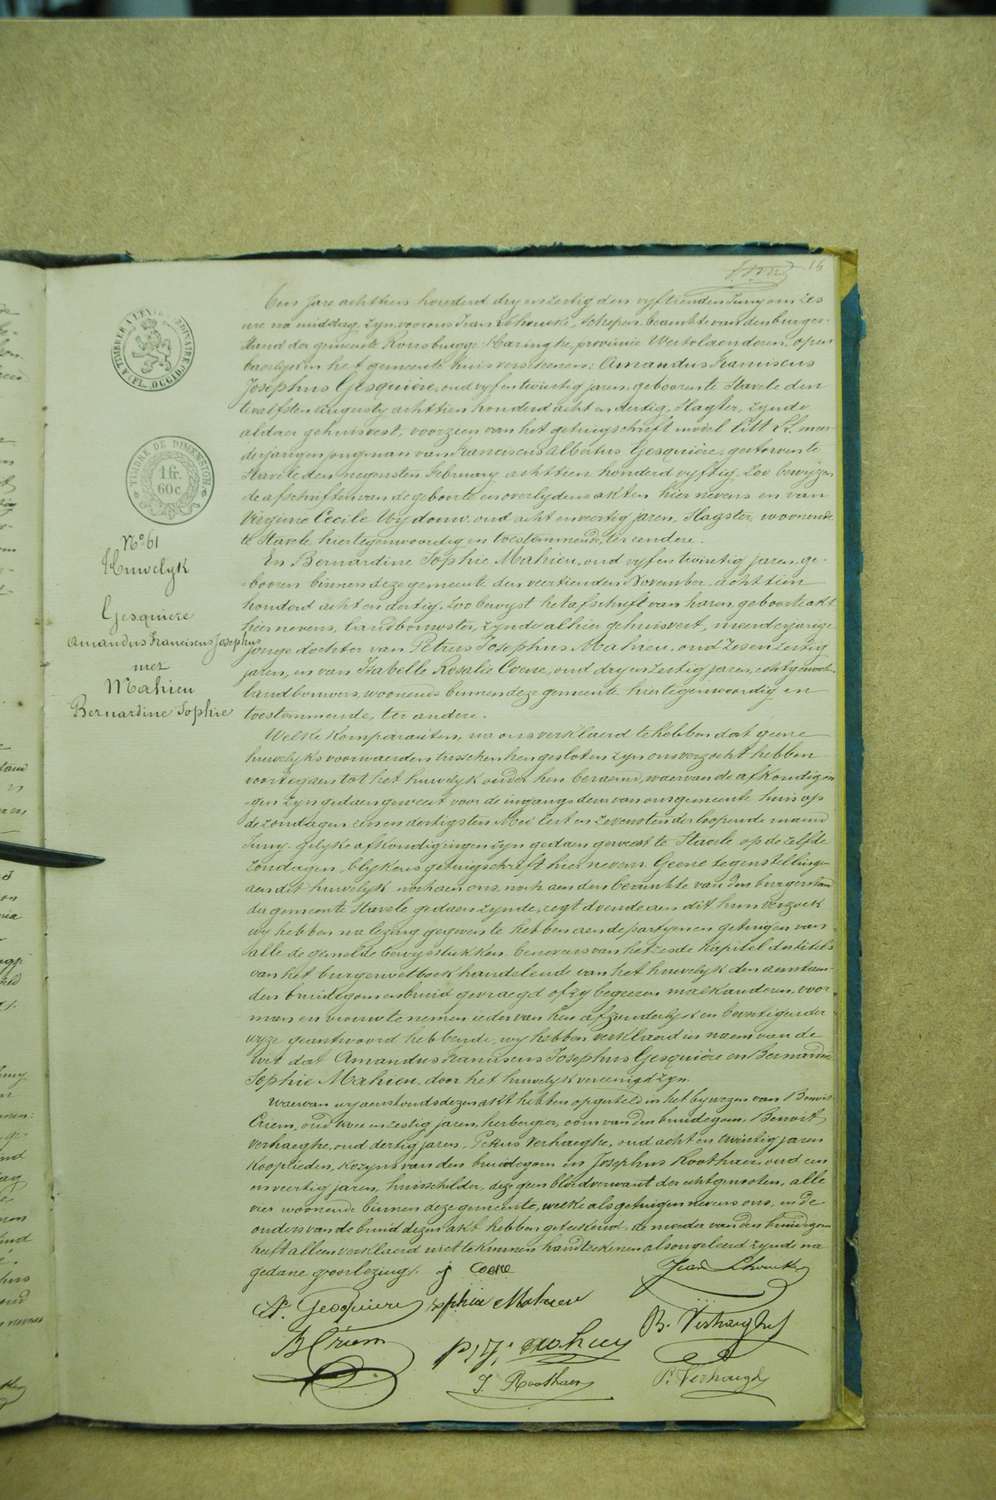 16
TIMBRE DE DIMENSION
1 fr.
60c
No 61
Huwelyk
Gesquiere
Amandus Franciscus Josephus
met
Mahieu
Bernardine Sophie
Ten jare achttien honderd dry en zestig den vyftienden Juny om zes
ure na middag, zyn voor ons Ivan Schepen beambte van den burger-
stand der gemeente Rousbrugge Haringhe, provincie Westvlaenderen, open-
baerlyk in het gemeente huis verschenen: Amandus Franciscus
Josephus Gesquière, oud vyf en twintig jaren, geboren te Stavele den
twaelfsten augusty achttien honderd acht en dertig, Slagter, zynde
aldaer gehuisvest, voorzien van het getuigschrift model Litt meer-
derjarigen jongman van Franciscus Albertus Gesquière, gestorven te
Stavele den negensten February achttien honderd vyftig. Zoo bewyzen
de afschriften van de geboorte en overlydens akten hier nevens en van
Virginie Cecile Wydouw, oud acht en veertig jaren, Slagster, woonende
te Stavele, hier tegenwoordig en toestemmende, ter eendere.
En Bernardine Sophie Mahieu, oud vyf en twintig jaren, ge-
-boren binnen deze gemeente den veertienden November achttien
honderd acht en dertig, zoo bewyst het afschrift van haren geboorte akt
hier nevens, landbouwster, zynde alhier gehuisvest, meerderjarige
jonge dochter van Petrus Josephus Mahieu, oud zes en zestig
jaren, en van Isabelle Rosalie Coene, oud dry en zestig jaren,
landbouwers, woonende binnen deze gemeente hier tegenwoordig en
toestemmende, ter andere.
Welke komparanten, na ons verklaerd te hebben dat geene
huwelyks voorwaerden tusschen hen gesloten zyn ons verzocht hebben
voortegaen tot het huwelyk onder hen beraemd, waervan de afkondigin-
-gen zyn gedaen geweest voor de ingangs deur van ons gemeente huis op
de zondagen een en dertigsten Mei lest en zevensten der loopende maend
Juny. Gelyke afkondigingen zyn gedaen geweest te Stavele op de zelfde
zondagen, blykens getuigschrift hier nevens. Geene tegenstelling
aen dit huwelyk noch aen ons, noch aen den beambte van den burgerstand
der gemeente Stavele gedaen zynde, regt doende aen dit hun verzoek
wy hebben na lezing gegeven te hebben aen de partyen en getuigen van
alle de gemelde bewysstukken benevens van het zesde kapitel des titels
van het burgerwetboek handelende van het huwelyk den aenstaen-
den bruidegom en bruid gevraegd of zy begeeren malkanderen voor
man en vrouw te nemen ieder van hen afzonderlyk en bevestigender
wyze geantwoord hebbende, wy hebben verklaerd in naem van de
wet dat Amandus Franciscus Josephus Gesquière en Bernardine
Sophie Mahieu, door het huwelyk vereenigd zyn.
Waervan wy aenstonds dezen akt hebben opgesteld in het bywezen van Benoit
Criem, oud twee en zestig jaren, herbergier, oom van den bruidegom, Benoit
Verhaeghe, oud dertig jaren, Petrus Verhaeghe, oud acht en twintig jaren
kooplieden, kozyns van den bruidegom en Josephus Roothaer, oud een
en veertig jaren, huisschilder, deze geen bloedverwant der echtgenooten, alle
vier woonende binnen deze gemeente, welke als getuigen nevens ons, en de
ouders van de bruid dezen akt hebben geteekend, de moeder van den bruidegom
heeft alleen verklaerd niet te kunnen handteekenen als ongeleerd zynde na
gedane voorlezing.
j Coene
A. Gesquiere
Sophie Mahieu
B. Verhaeghe
B Criem
p, j, mahieu
J Roothaer
P. Verhaeghe